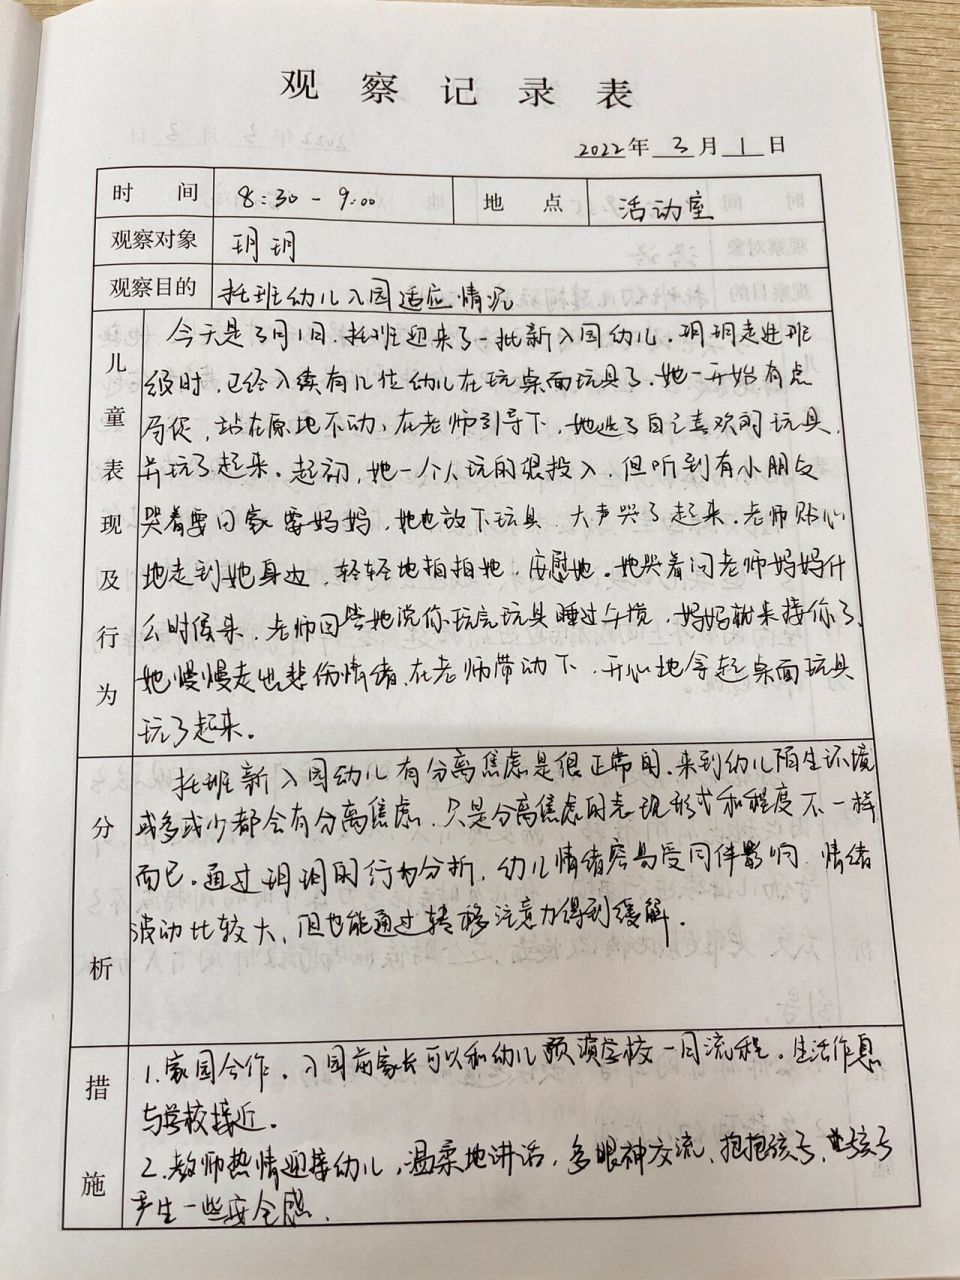 观察记录表
2022年 3月 1日
时间 8:30 - 9:00 地点 活动室
观察对象 玥玥
观察目的 托班幼儿入园适应情况
儿童表现及行为
今天是3月1日,托班迎来了一批新入园幼儿。玥玥走进班
级时,已经入续有几位幼儿在玩桌面玩具了。她一开始有点
局促,站在原地不动,在老师引导下,她选了自己喜欢的玩具,
并玩了起来。起初,她一个人玩的很投入,但听到有小朋友
哭着要回家要妈妈,她也放下玩具,大声哭了起来。老师贴心
地走到她身边,轻轻地拍拍她,安慰她。她哭着问老师妈妈什
么时候来,老师回答她说你玩完玩具睡过午觉,妈妈就来接你了,
她慢慢走出悲伤情绪,在老师带动下,开心地拿起桌面玩具
玩了起来。
分析
托班新入园幼儿有分离焦虑是很正常的,来到幼儿陌生环境
或多或少都会有分离焦虑,只是分离焦虑的表现形式和程度不一样
而已。通过玥玥的行为分析,幼儿情绪容易受同伴影响,情绪
波动比较大,但也能通过转移注意力得到缓解。
措施
1.家园合作。入园前家长可以和幼儿预演学校一日流程。生活作息
与学校接近。
2.教师热情迎接幼儿,温柔地讲话,多眼神交流、抱抱孩子,让孩子
产生一些安全感。